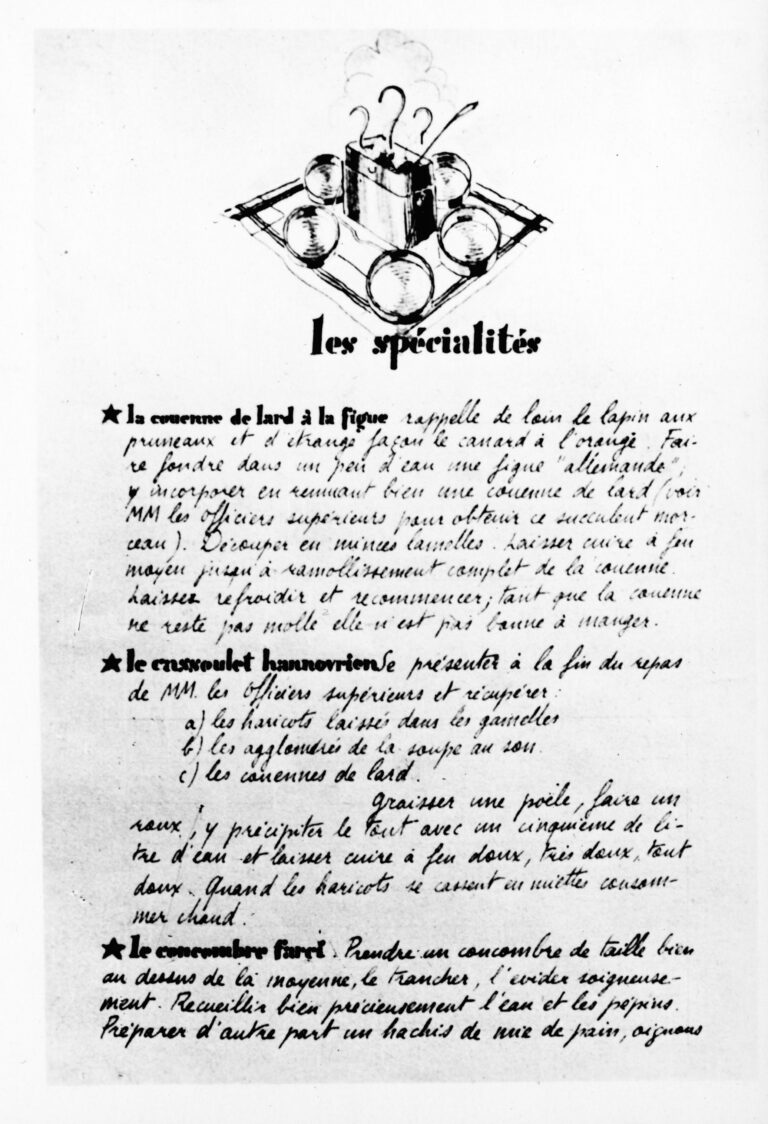 ? ? ?
les spécialités
★ la couenne de lard à la figue rappelle de loin le lapin aux
pruneaux et d'étrange façon le canard à l'orange. Fai-
re fondre dans un peu d'eau une figue "allemande",
y incorporer en remuant bien une couenne de lard (voir
MM les officiers supérieurs pour obtenir ce succulent mor-
ceau). Découper en minces lamelles. Laisser cuire à feu
moyen jusqu'à ramollissement complet de la couenne.
Laisser refroidir et recommencer; tant que la couenne
ne reste pas molle elle n'est pas bonne à manger.
★ le cassoulet hannovrien Se présenter à la fin du repas
de MM. les Officiers supérieurs et récupérer:
a) les haricots laissés dans les gamelles
b) les agglomérés de la soupe au son.
c) les couennes de lard.
Graisser une poêle, faire un
roux, y précipiter le tout avec un cinquième de li-
tre d'eau et laisser cuire à feu doux, très doux, tout
doux. Quand les haricots se cassent en miettes consom-
mer chaud.
★ le concombre farci. Prendre un concombre de taille bien
au dessus de la moyenne, le trancher, l'evider soigneuse-
ment. Recueillir bien précieusement l'eau et les pépins.
Préparer d'autre part un hachis de mie de pain, oignons